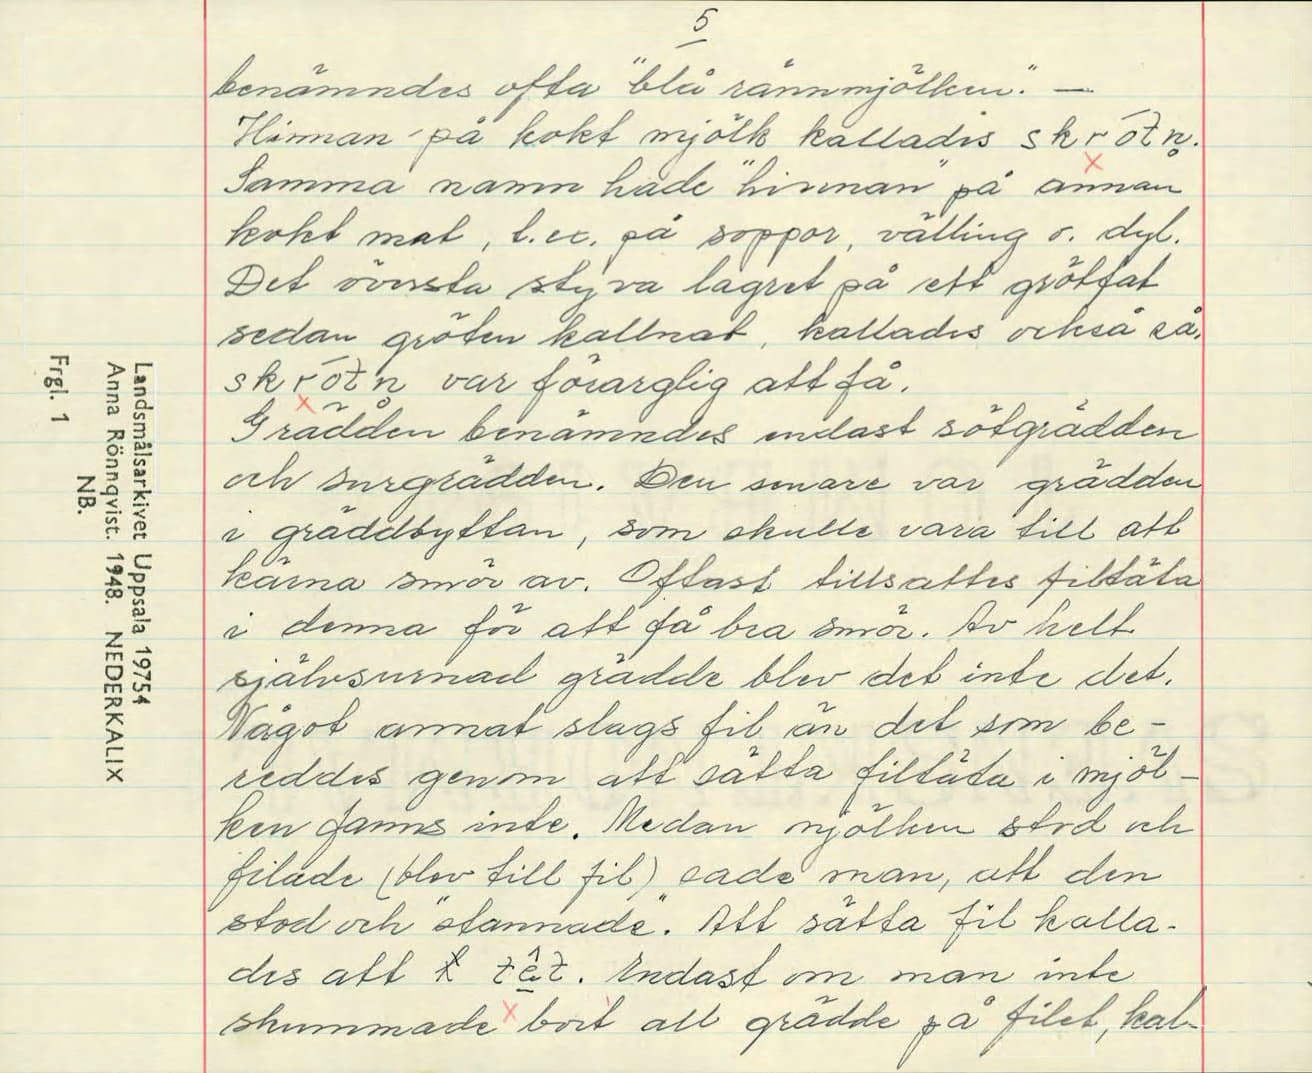 5
benämndes ofta "blå rännmjölken". —
Hinnan på kokt mjölk kallades skrōtn̥.
Samma namn hade "hinnan" på annan
kokt mat, t.ex. på soppor, välling o. dyl.
Det översta styva lagret på ett grötfat
sedan gröten kallnat, kallades också så.
skrōtn̥ var förarglig att få.
Grädden benämndes endast sötgrädden
och surgrädden. Den senare var grädden
i gräddbyttan, som skulle vara till att
kärna smör av. Oftast tillsattes filtäta
i denna för att få bra smör. Av helt
självsurnad grädde blev det inte det.
Något annat slags fil än det som be-
reddes genom att sätta filtäta i mjöl-
ken fanns inte. Medan mjölken stod och
filade (blev till fil) sade man, att den
stod och "stannade". Att sätta fil kalla-
des att têt. Endast om man inte
skummade bort all grädde på filet, kal-
Landsmålsarkivet Uppsala 19754
Anna Rönnqvist. 1948. NEDERKALIX
NB.
Frgl. 1